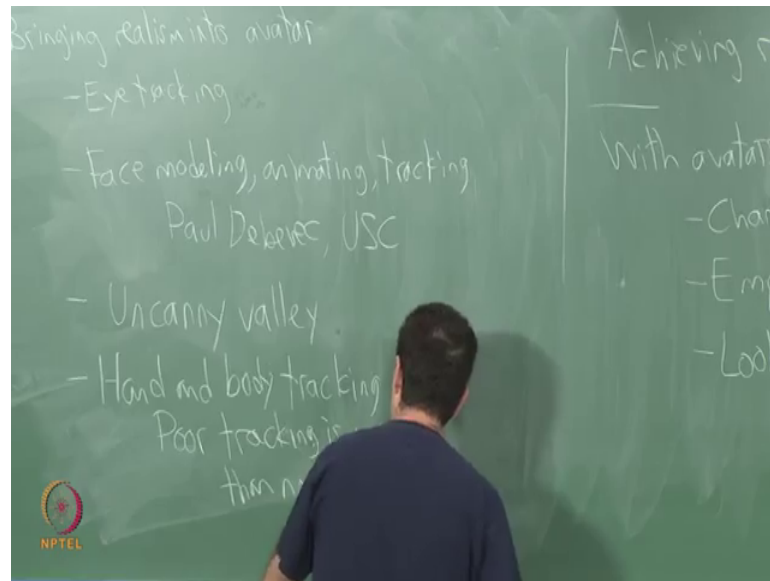 Bringing realism into avatar
- Eye tracking
- Face modeling, animating, tracking
Paul Debevec, USC
- Uncanny valley
- Hand and body tracking
Poor tracking is
than
Achieving
With avatar
- Char
- Emp
- Look
NPTEL